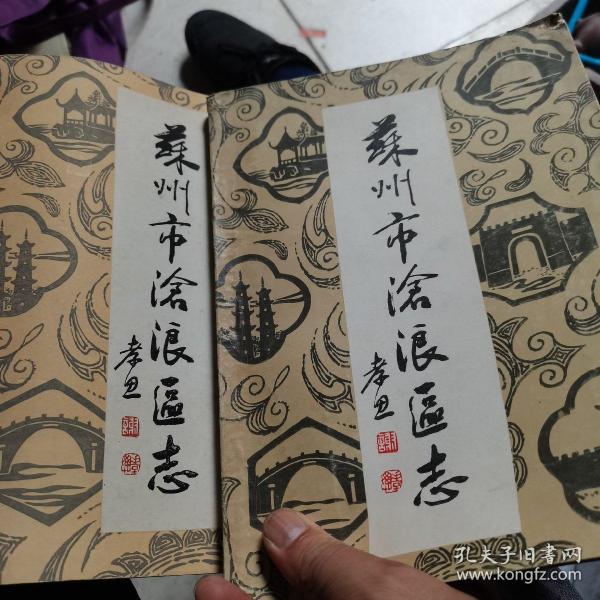 蘇州市滄浪區志
孝思
謝
蘇州市滄浪區志
孝思
謝
孔夫子旧書网
www.kongfz.com